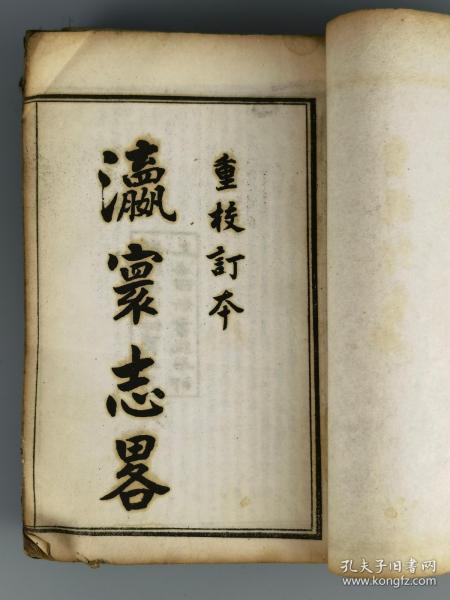 重校訂本
瀛寰志畧
孔夫子旧书网
www.kongfz.com